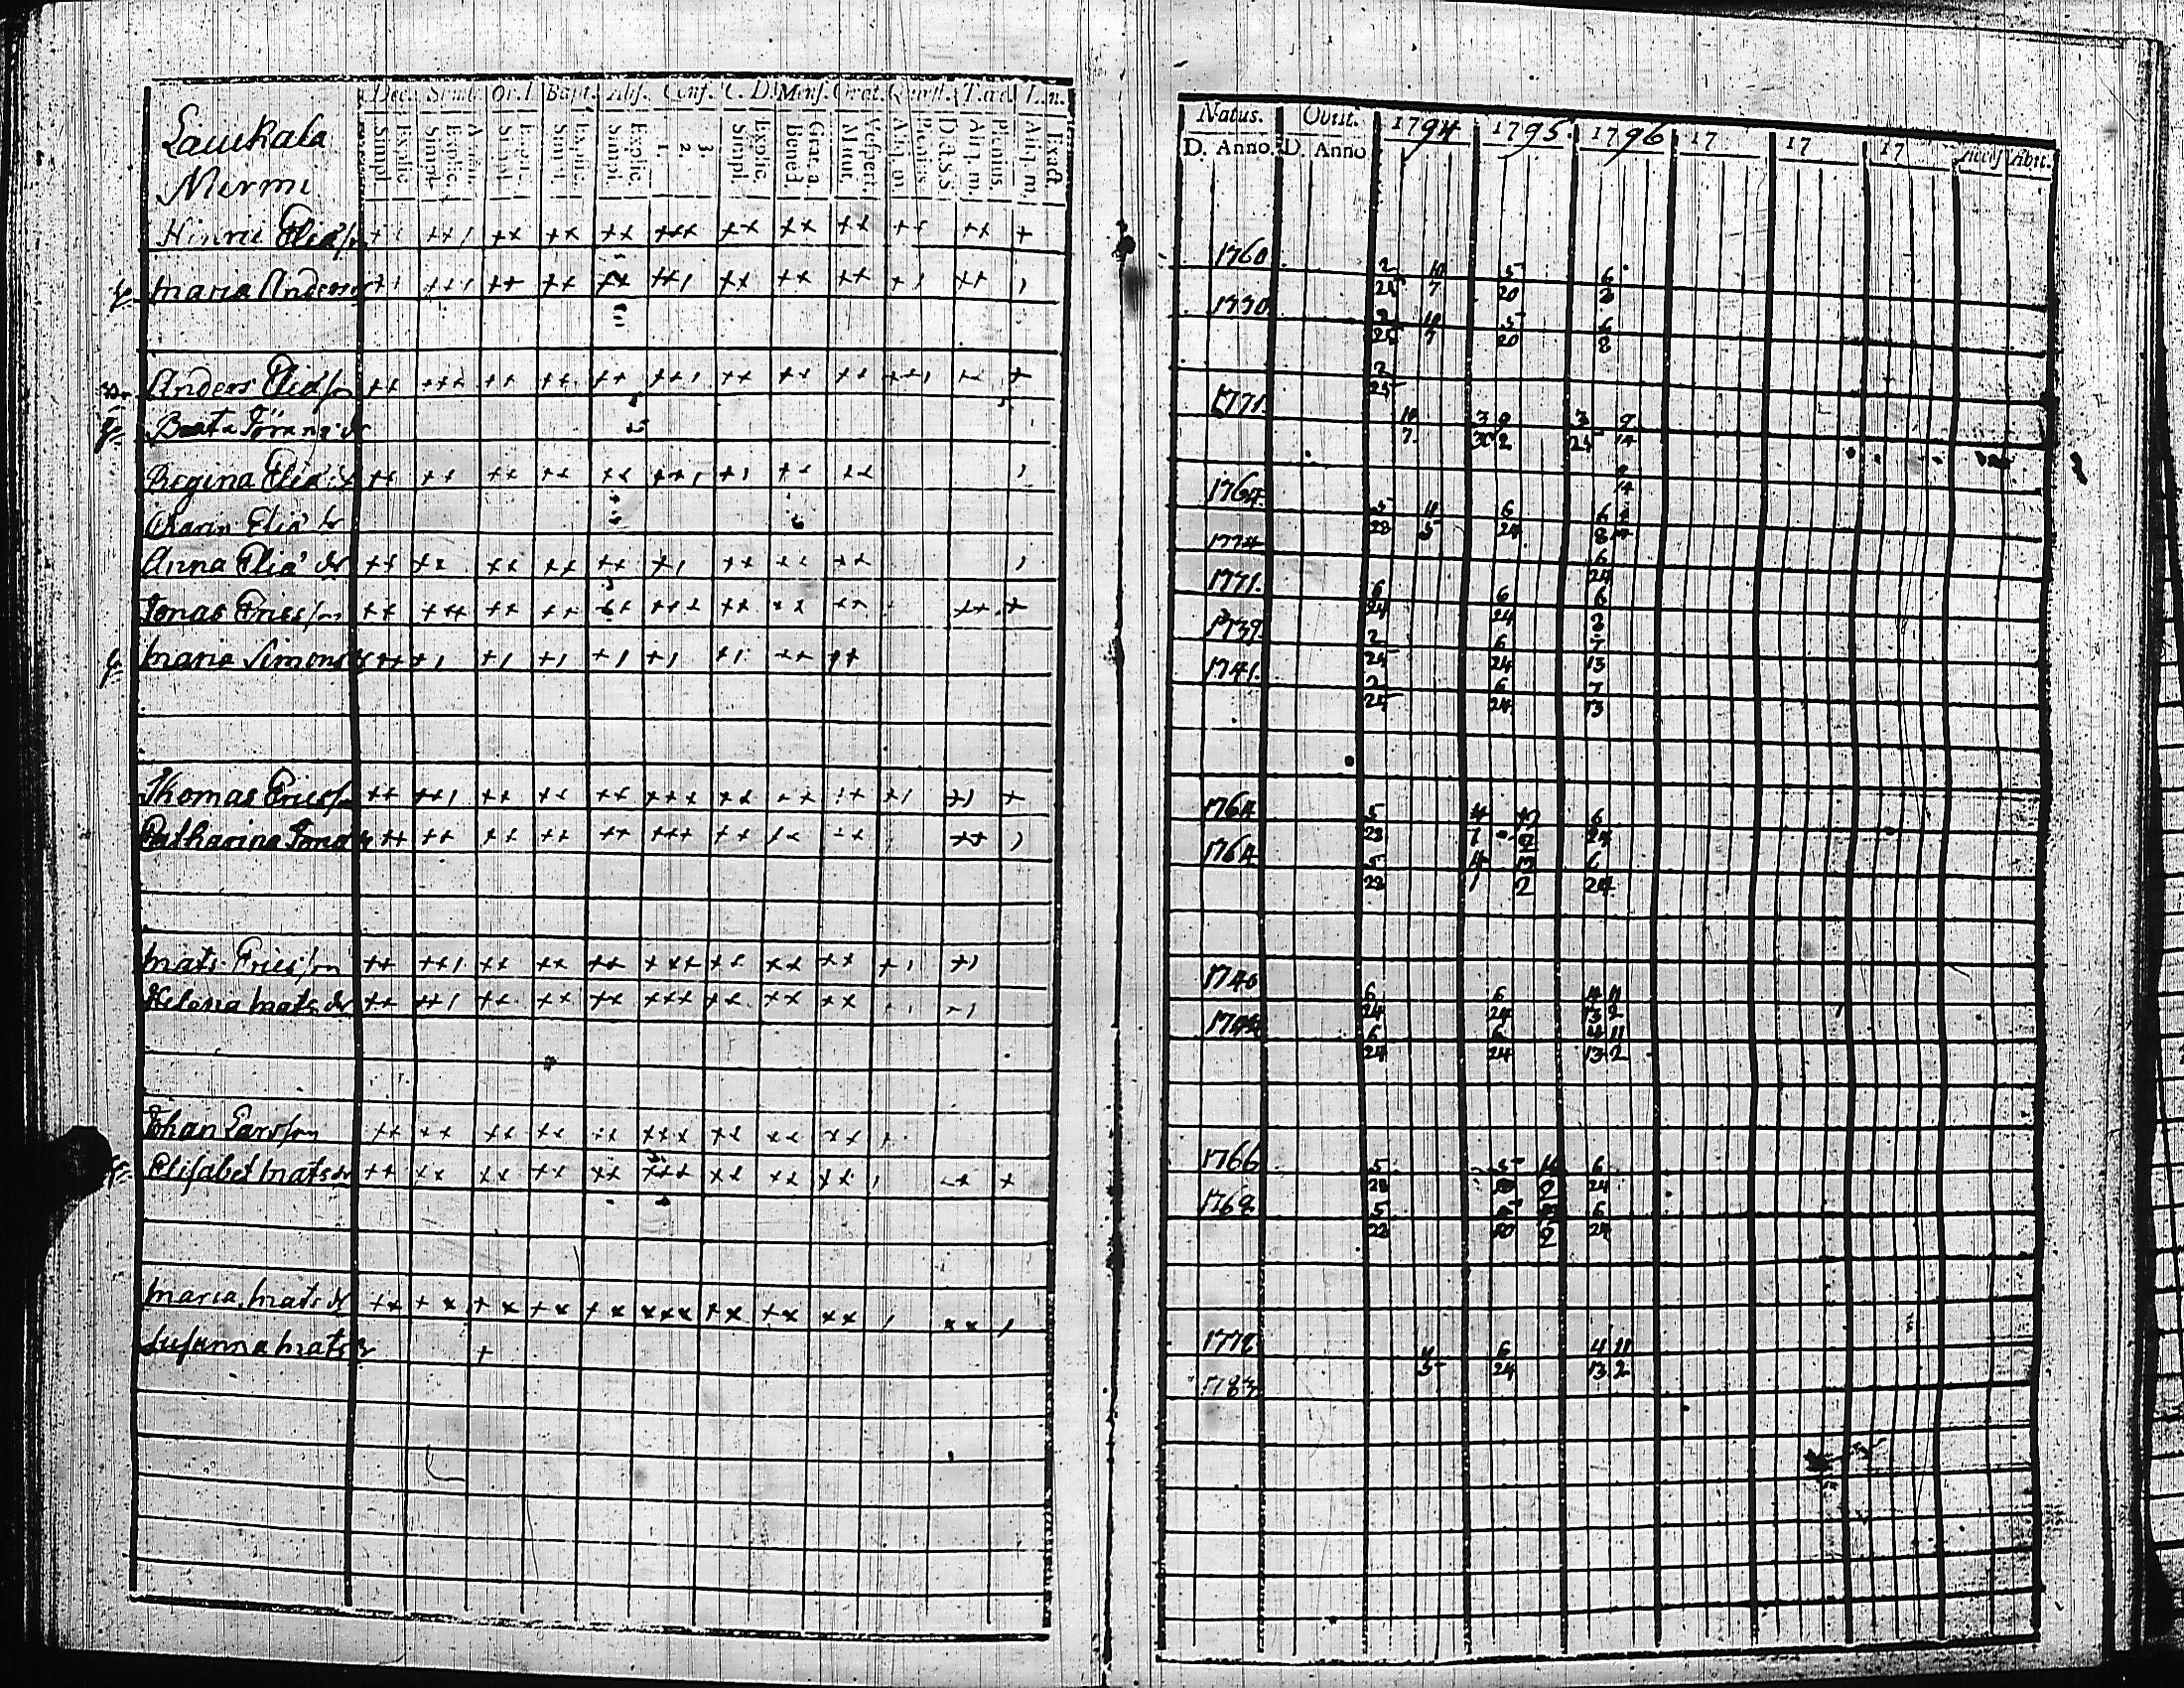 Dec. Simb. Or. D. Bapt. Abs. Conf. C. D. Mens. Orat. Quæst. T. oec. L. n.
Laukala
Explic. Simpl. Explic. Simpl. Explic. Simpl. Explic. Simpl. Explic. Simpl. 3 2. 1. Explic. Simpl. Grat. a. Bened. Vespert. Matut. D. d. s. s. Plenius. Aliq. m. Plenius. Aliq. m. Exact. Aliq. m.
Nurmi
Hinric Eliasson
Maria Anders
Anders Eliasson
Beata Jöransdr
Regina Eliasdr
Charin Elias dr
Anna Elias dr
Jonas Ericsson
Maria Simonsdr
Thomas Ericsson
Catharina Jonasdr
Mats Ericsson
Helena Mats dr
Johan Larsson
Elisabet Matsdr
Maria Mats dr
Susanna Matsdr
Natus. Obiit. 1794 1795 1796 17 17 17 Access Abit.
D. Anno. D. Anno
1760 2 10 5 6
25 7 20 8
1730 2 10 5 6
25 7 20 8
2
25
1771 10 3 9 3 9
7 30 2 25 14
1764 5 4 6 6
28 5 24 8
1774 6
24
1771 6 6 6
24 24 8
1739 2 6 7
25 24 13
1741 2 6 7
25 24 13
1764 5 4 6
28 1 24
1764 5 4 6
28 1 2 24
1740 6 6 4 11
24 24 13 2
6 6 4 11
24 24 13 2
1766 5 5 6
28 20 2 24
1768 5 5 6
28 20 2 24
1772 6 4 11
5 24 13 2
1783